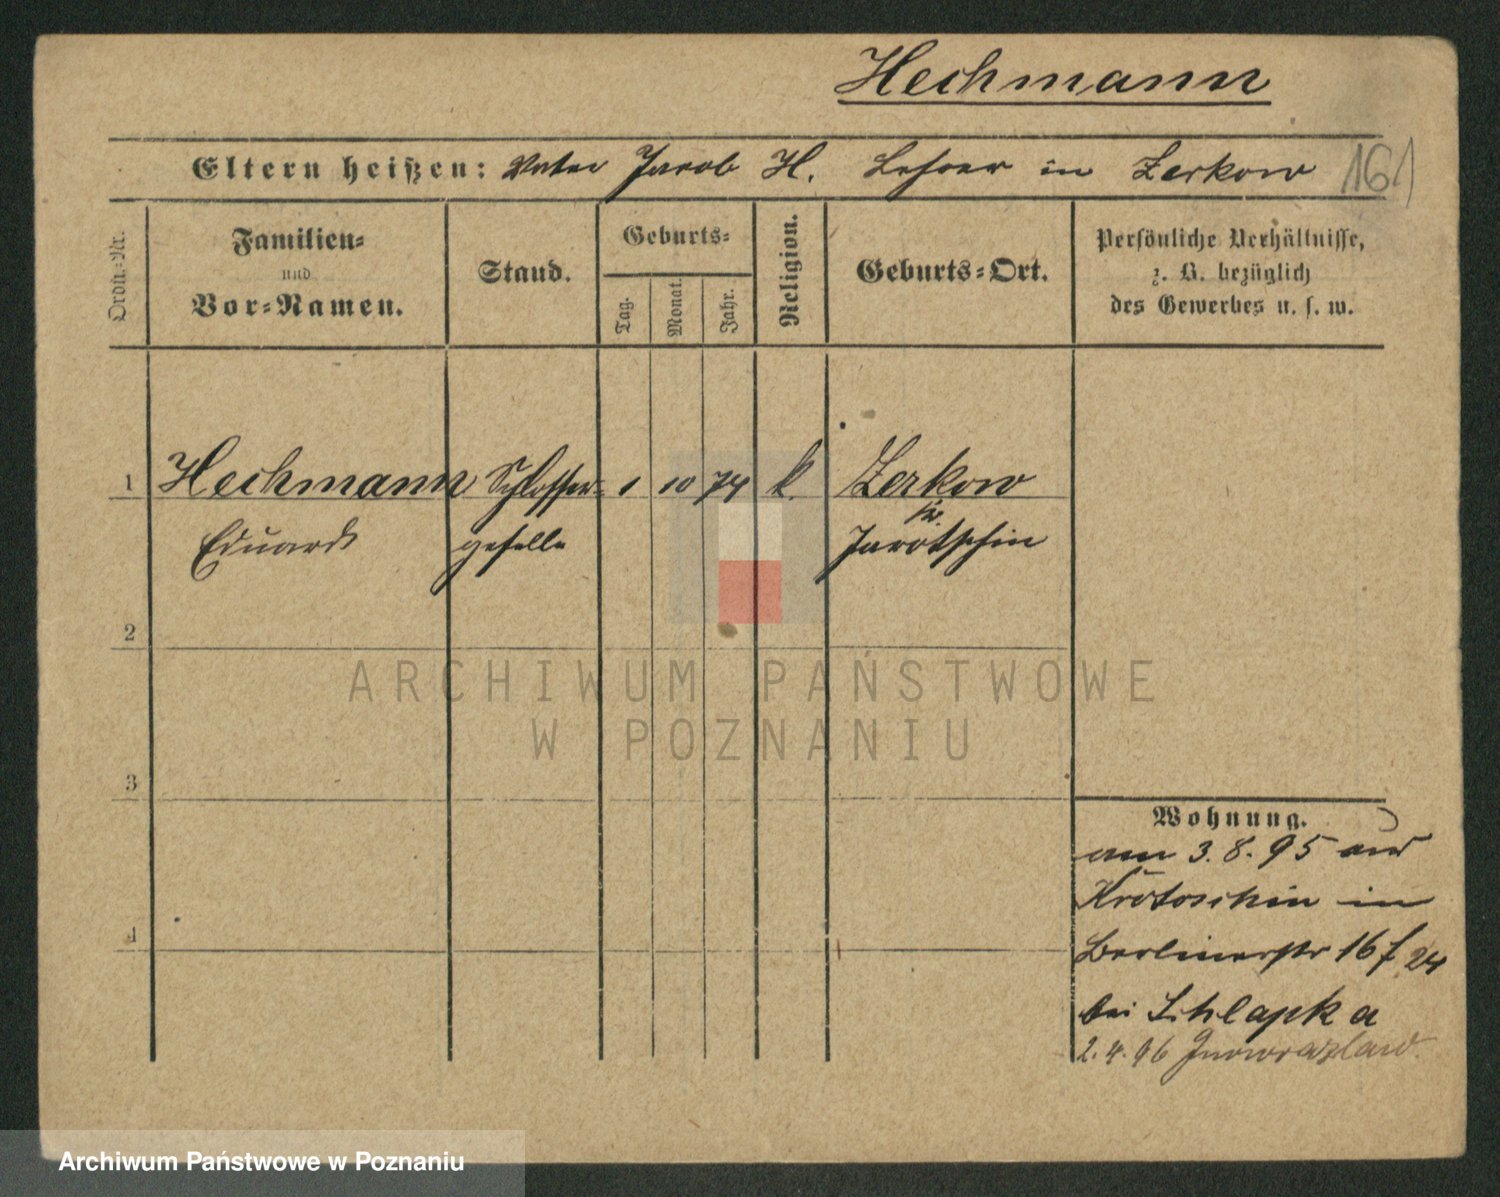 Hechmann
Eltern heißen: Vater Jacob H. Lehrer in Zerkow 161
Ordn.-Nr.
Familien-
und
Vor-Namen.
Stand.
Geburts-
Tag.
Monat.
Jahr.
Religion.
Geburts-Ort.
Persönliche Verhältnisse,
z. B. bezüglich
des Gewerbes u. s. w.
1 Hechmann Schlosser- 1 10 74 k. Zerkow
Eduard geselle Kr. Jarotschin
2
3
4
Wohnung.
am 3.8.95 aus
Krotoschin in
Berlinerstr 16 f 24
bei Schlapka
2.4.96 Inowrazlaw.
ARCHIWUM PAŃSTWOWE
W POZNANIU
Archiwum Państwowe w Poznaniu